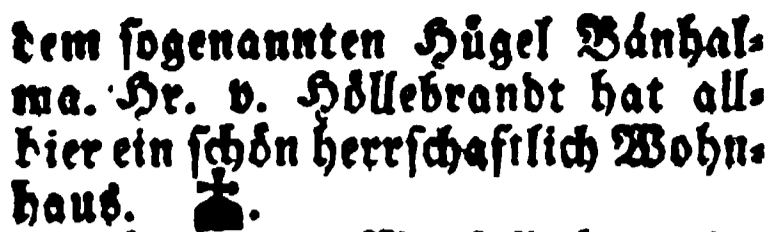 dem sogenannten Hügel Bánhal-
ma. Hr. v. Höllebrandt hat all-
hier ein schön herrschaftlich Wohn-
haus.